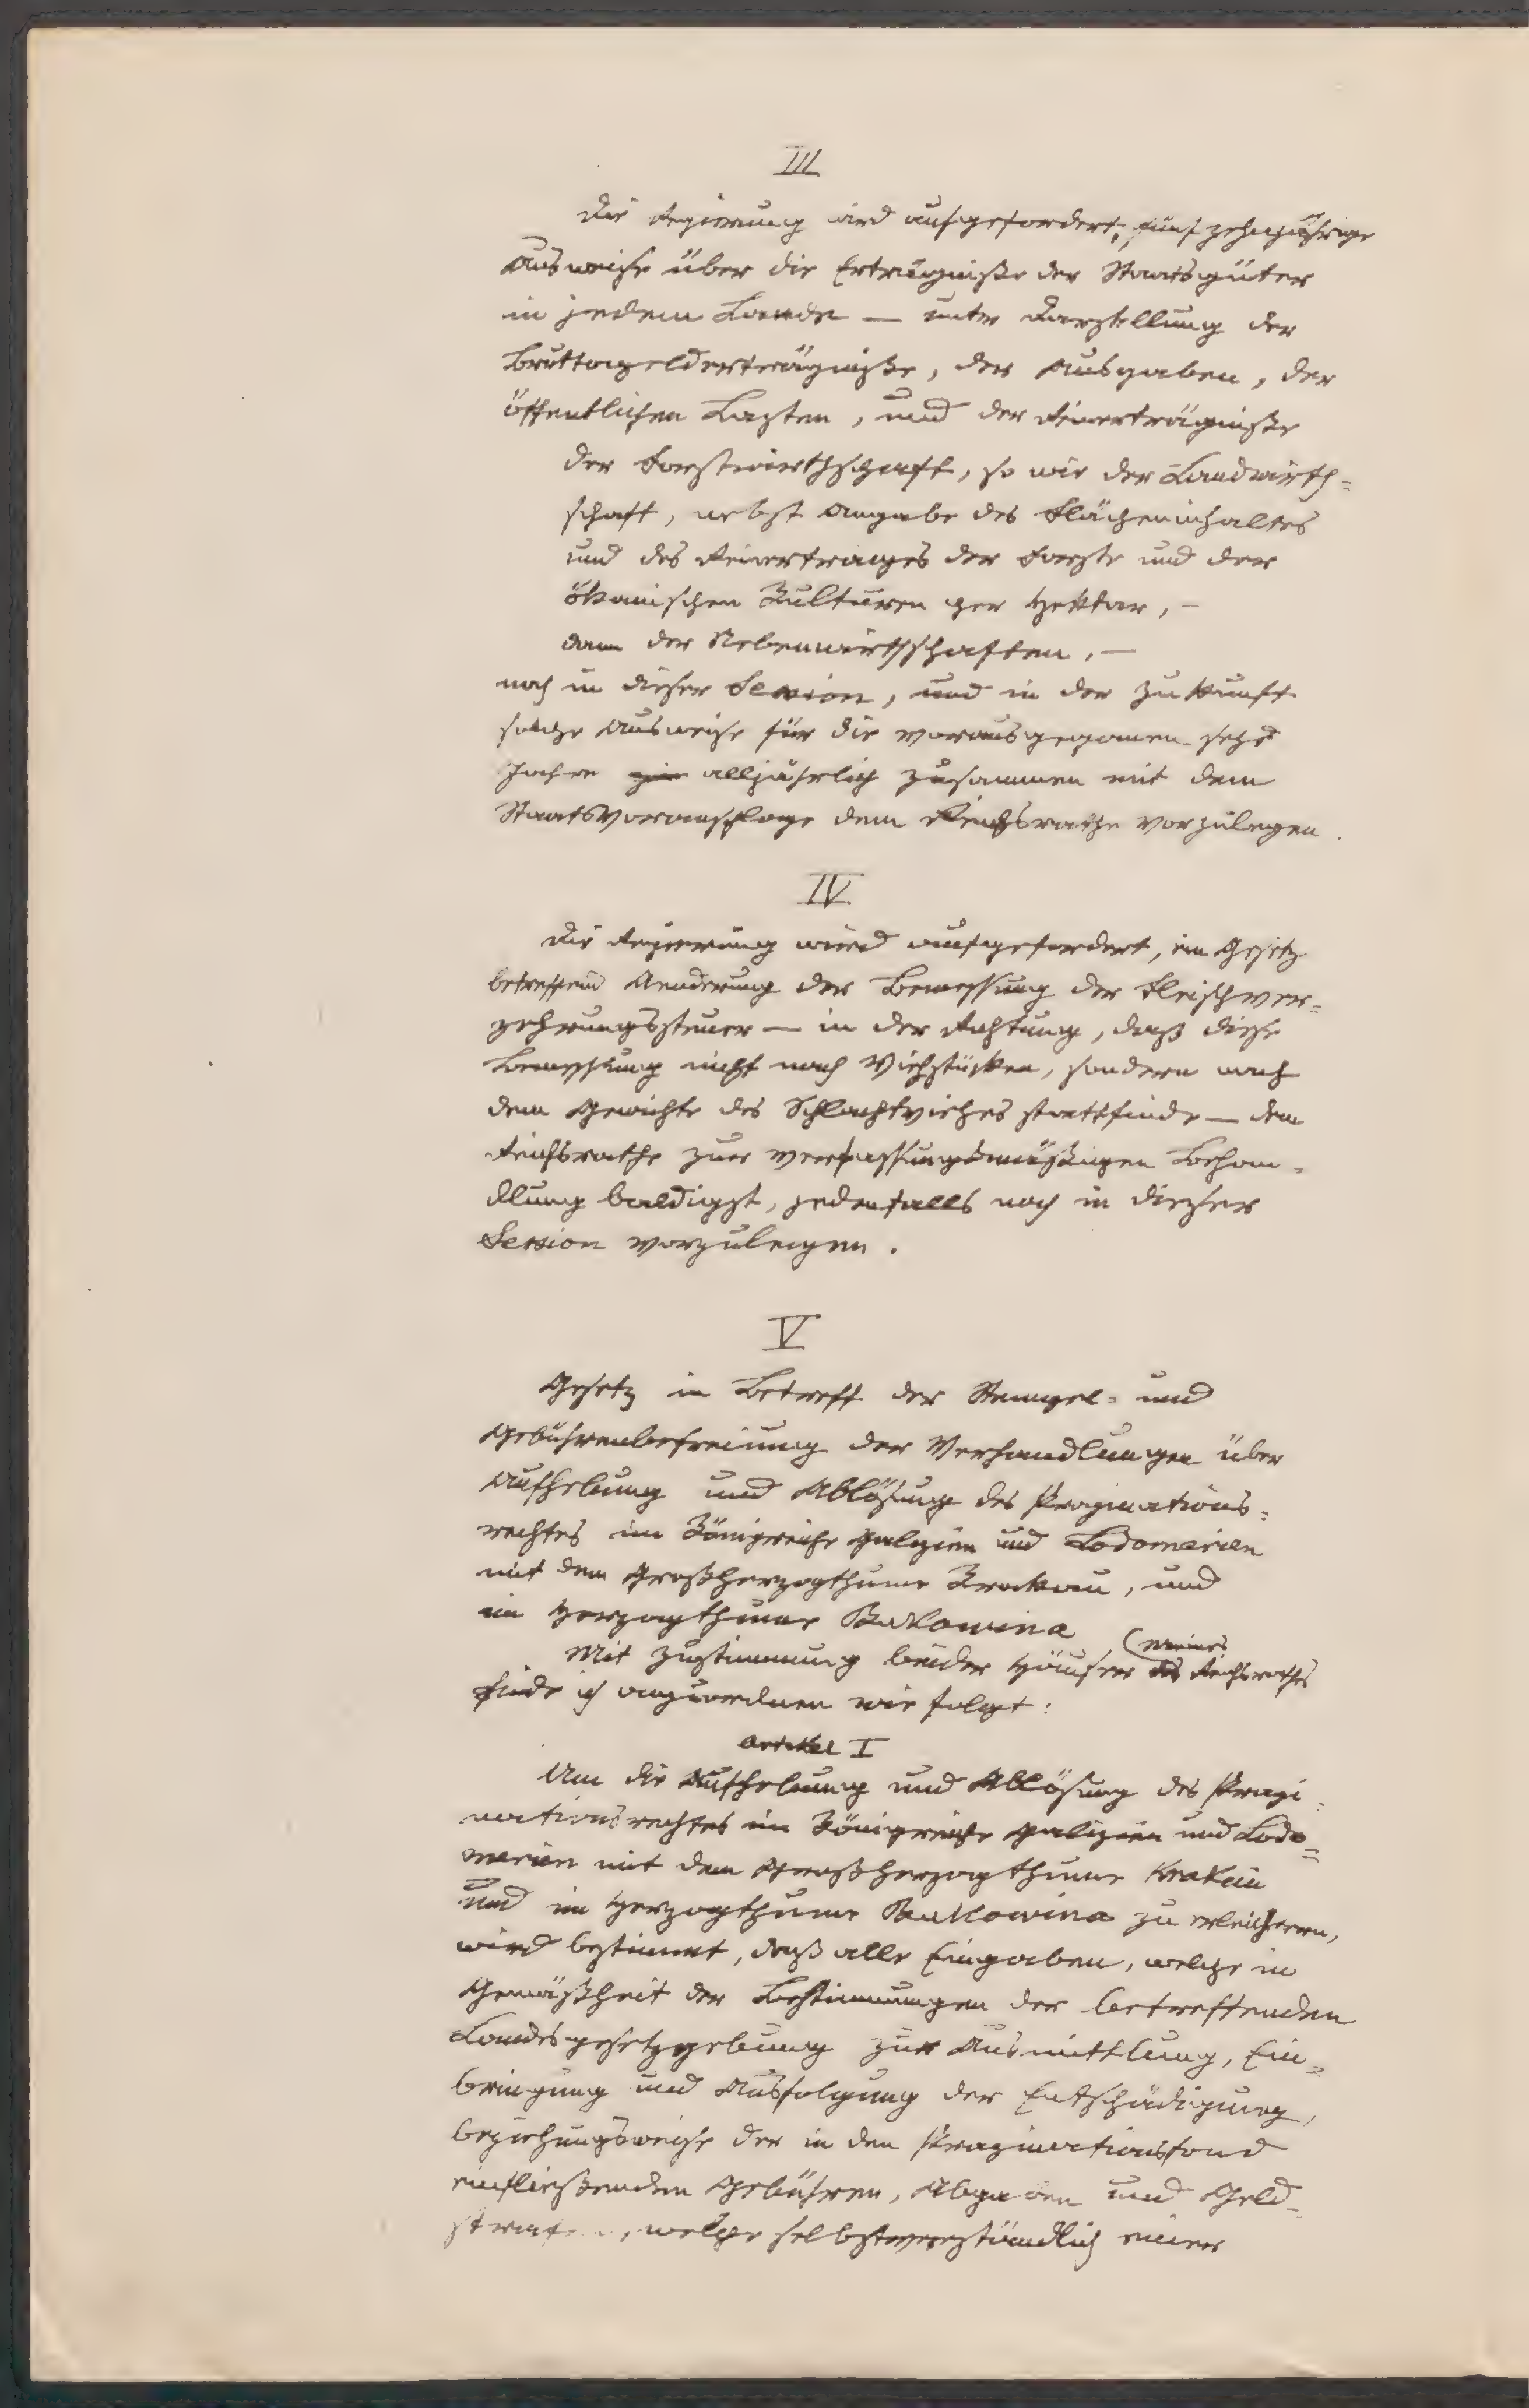 III
Die Regierung wird aufgefordert, fünfzehnjährige
Ausweise über die Erträgniße der Staatsgüter
in jedem Lande — unter Darstellung der
Bruttogelderträgniße, der Ausgaben, der
öffentlichen Lasten, und der Reinerträgniße
der Forstwirthschaft, so wie der Landwirth=
schaft, nebst Angabe des Flächeninhaltes
und des Reinertrages der Forste und der
ökonischen Kulturen per Hektar, —
dann der Nebenwirthschaften, —
noch in dieser Session, und in der Zukunft
solche Ausweise für die vorausgegangenen sechs
Jahre alljährlich zusammen mit dem
Staatsvoranschlage dem Reichsrathe vorzulegen.
IV
Die Regierung wird aufgefordert, ein Gesetz
betreffend Aenderung der Bemessung der Fleischver=
zehrungssteuer — in der Richtung, daß diese
Bemessung nicht nach Viehstücken, sondern nach
dem Gewichte des Schlachtviehes stattfinde — dem
Reichsrathe zur verfassungsmäßigen Behan=
dlung baldigst, jedenfalls noch in dieser
Session vorzulegen.
V
Gesetz in Betreff der Stempel= und
Gebührenbefreiung der Verhandlungen über
Aufhebung und Ablösung des Propinations=
rechtes im Königreiche Galizien und Lodomerien
mit dem Großherzogthume Krakau, und
im Herzogthume Bukowina
Mit Zustimmung beider Häuser (meines des Reichsrathes
finde ich anzuordnen wie folgt:
Artikel I
Um die Aufhebung und Ablösung des Propi=
nationsrechtes im Königreiche Galizien und Lodo=
merien mit dem Großherzogthume Krakau
und im Herzogthume Bukowina zu erleichtern,
wird bestimmt, daß alle Eingaben, welche in
Gemäßheit der Bestimmungen der betreffenden
Landesgesetzgebung zur Ausmittlung, Ein=
bringung und Ausfolgung der Entschädigung,
beziehungsweise der in den Propinationsfond
einfließenden Gebühren, Abgaben und Geld=
strafen, welche selbstverständlich einer